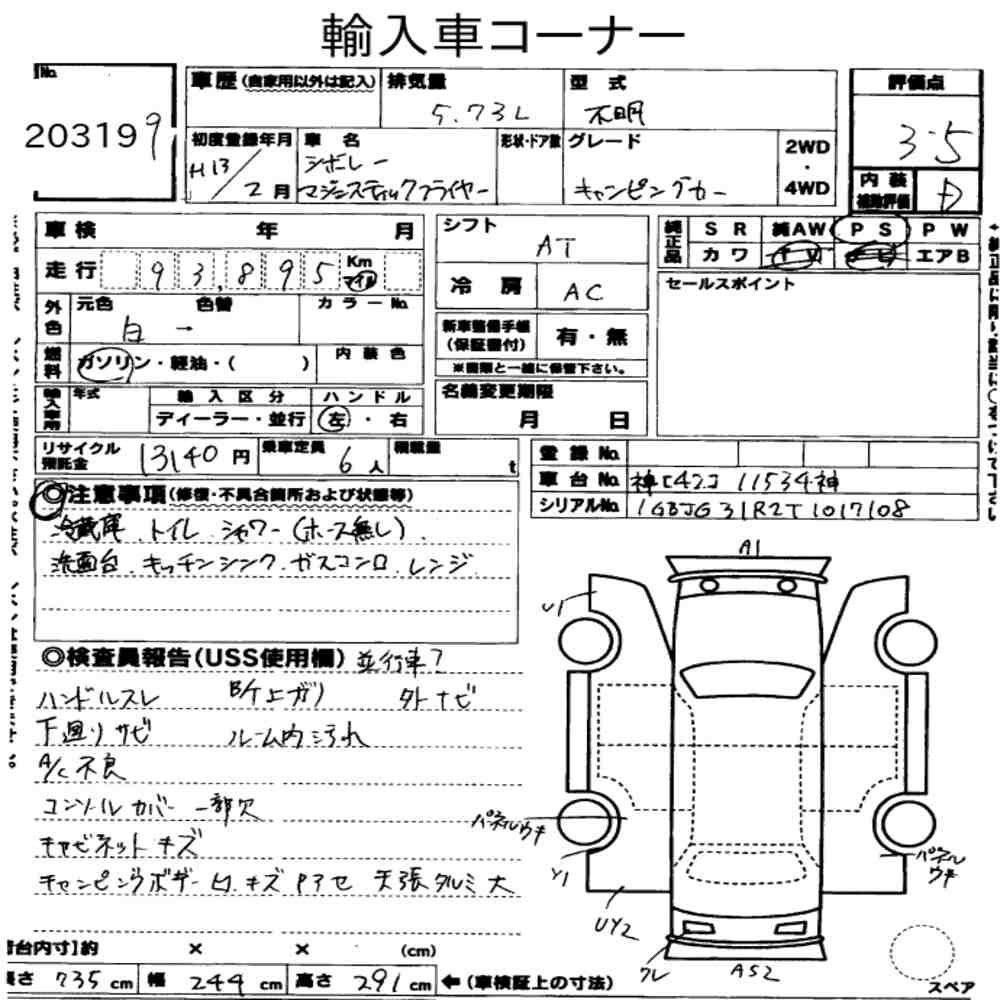 輸入車コーナー
No.
203199
車歴(自家用以外は記入)
排気量
5.73L
型式
不明
評価点
3.5
初度登録年月
H13/2月
車名
シボレー
マジェスティックフライヤー
形状・ドア数
グレード
キャンピングカー
2WD
・
4WD
内装
補助評価
D
車検 年 月
走行 93,895 Km マイル
シフト
AT
冷房
AC
純正品
SR 純AW PS PW
カワ TV エアB
セールスポイント
外色
元色 色替 カラーNo.
白 →
新車整備手帳
(保証書付)
有・無
※書類と一緒に保管下さい。
燃料
ガソリン・軽油・( )
内装色
名義変更期限
月 日
輸入車用
年式
輸入区分
ハンドル
ディーラー・並行
左・右
リサイクル
預託金
13140円
乗車定員
6人
積載量
t
登録No.
車台No.
神[42]11534神
シリアルNo.
1GBJG31R2T1017108
◎注意事項(修復・不具合箇所および状態等)
冷蔵庫.トイレ.シャワー(ホース無し).
洗面台.キッチンシンク.ガスコンロ.レンジ
◎検査員報告(USS使用欄) 並行車?
ハンドルスレ
外ナビ
下廻りサビ ルーム内汚れ
A/C不良
コンソールカバー一部欠
キャビネットキズ
キャンピングボデー凹.キズPアセ 天張タルミ大
A1
U1
パネルウキ
Y1
UY2
クレ
AS2
パネルウキ
スペア
台内寸】約 × × (cm)
長さ 735cm 幅 244cm 高さ 291cm ←(車検証上の寸法)